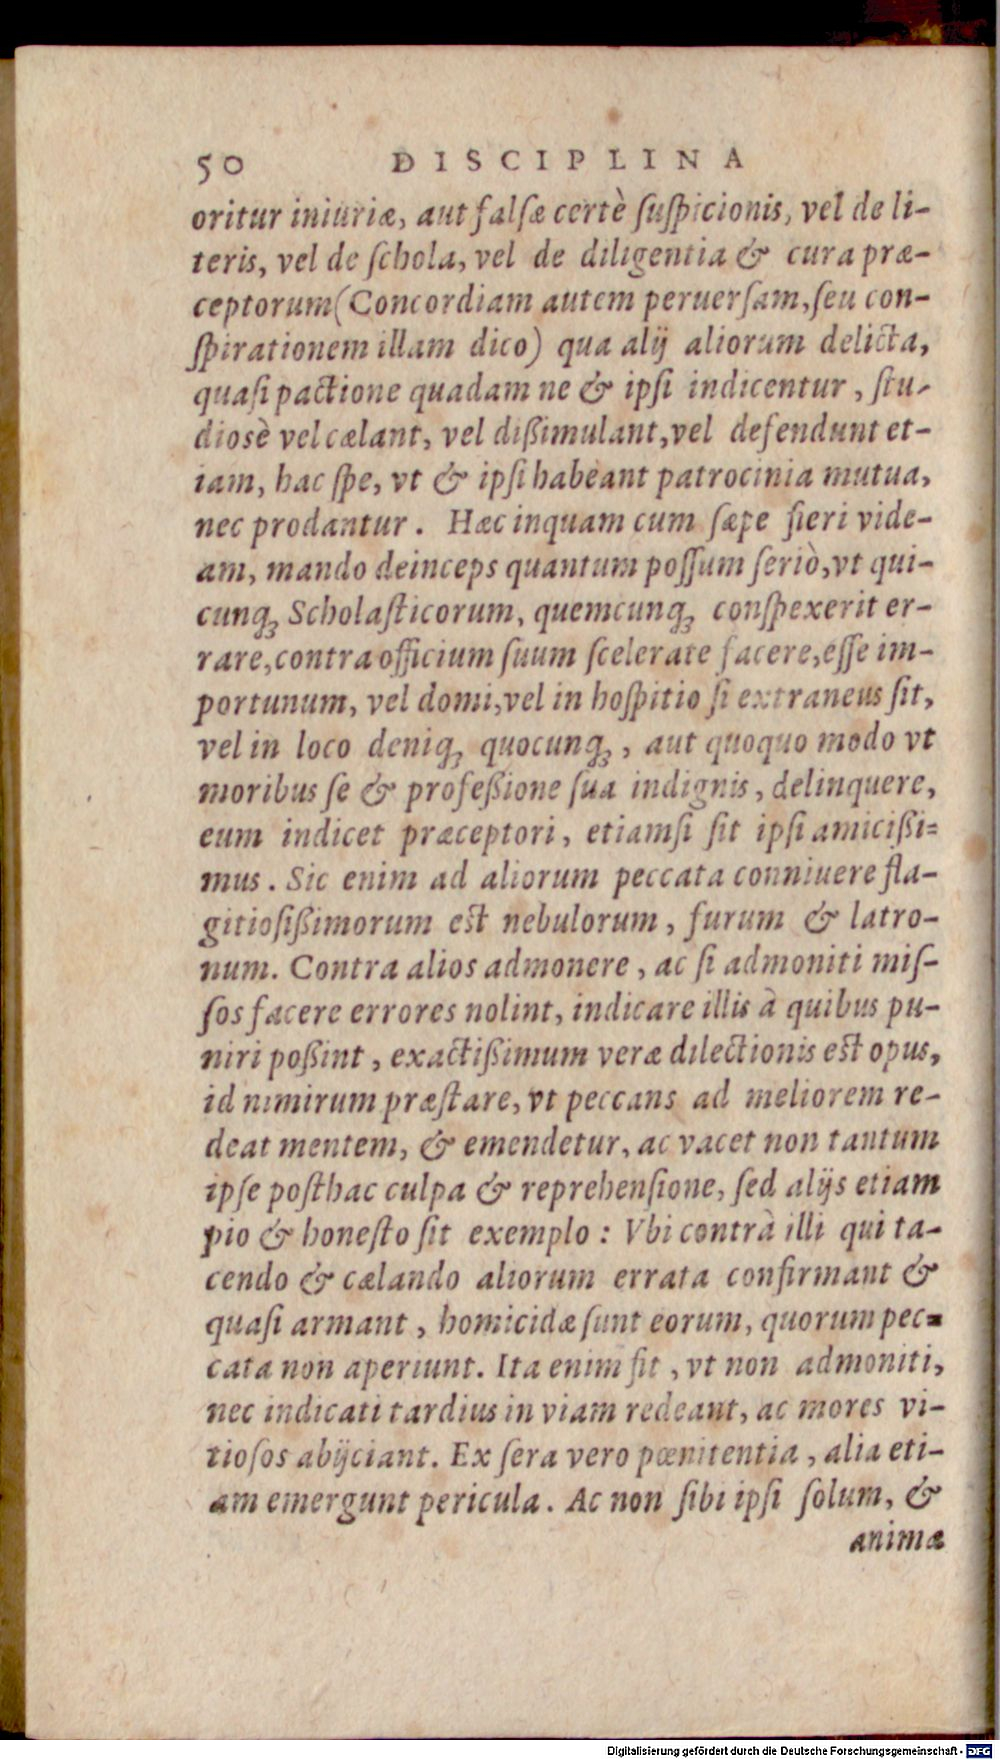 50 DISCIPLINA
oritur iniuriæ, aut falſæ certè ſuſpicionis, vel de li-
teris, vel de ſchola, vel de diligentia & cura præ-
ceptorum (Concordiam autem peruerſam, ſeu con-
ſpirationem illam dico) qua alij aliorum delicta,
quaſi pactione quadam ne & ipſi indicentur, ſtu-
dioſè vel cælant, vel dißimulant, vel defendunt et-
iam, hac ſpe, vt & ipſi habeant patrocinia mutua,
nec prodantur. Hæc inquam cum ſæpe fieri vide-
am, mando deinceps quantum poſſum ſeriò, vt qui-
cunq; Scholaſticorum, quemcunq; conſpexerit er-
rare, contra officium ſuum ſcelerate facere, eſſe im-
portunum, vel domi, vel in hoſpitio ſi extraneus ſit,
vel in loco deniq; quocunq;, aut quoquo modo vt
moribus ſe & profeßione ſua indignis, delinquere,
eum indicet præceptori, etiamſi ſit ipſi amicißi=
mus. Sic enim ad aliorum peccata conniuere fla-
gitioſißimorum eſt nebulorum, furum & latro-
num. Contra alios admonere, ac ſi admoniti miſ-
ſos facere errores nolint, indicare illis à quibus pu-
niri poßint, exactißimum veræ dilectionis eſt opus,
id nimirum præſtare, vt peccans ad meliorem re-
deat mentem, & emendetur, ac vacet non tantum
ipſe poſthac culpa & reprehenſione, ſed alijs etiam
pio & honeſto ſit exemplo: Vbi contrà illi qui ta-
cendo & cælando aliorum errata confirmant &
quaſi armant, homicidæ ſunt eorum, quorum pec=
cata non aperiunt. Ita enim fit, vt non admoniti,
nec indicati tardius in viam redeant, ac mores vi-
tioſos abijciant. Ex ſera vero pœnitentia, alia eti-
am emergunt pericula. Ac non ſibi ipſi ſolum, &
animæ
Digitalisierung gefördert durch die Deutsche Forschungsgemeinschaft - DFG